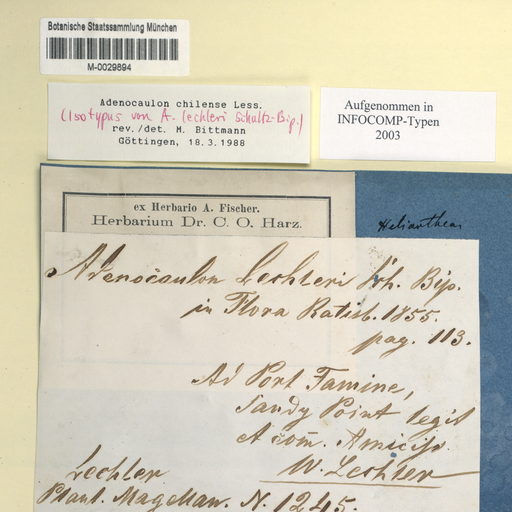 Botanische Staatssammlung München
M-0029894
Adenocaulon chilense Less.
(Isotypus von A. lechleri Schultz-Bip.)
rev./det. M. Bittmann
Göttingen, 18.3.1988
Aufgenommen in
INFOCOMP-Typen
2003
ex Herbario A. Fischer.
Herbarium Dr. C. O. Harz.
Heliantheae
Adenocaulon Lechleri Sch. Bip.
in Flora Ratisb. 1855.
pag. 113.
Ad Port Famine,
Sandy Point legit
et com̄.
W. Lechler
Lechler
Plant. Magellan. N. 1245.